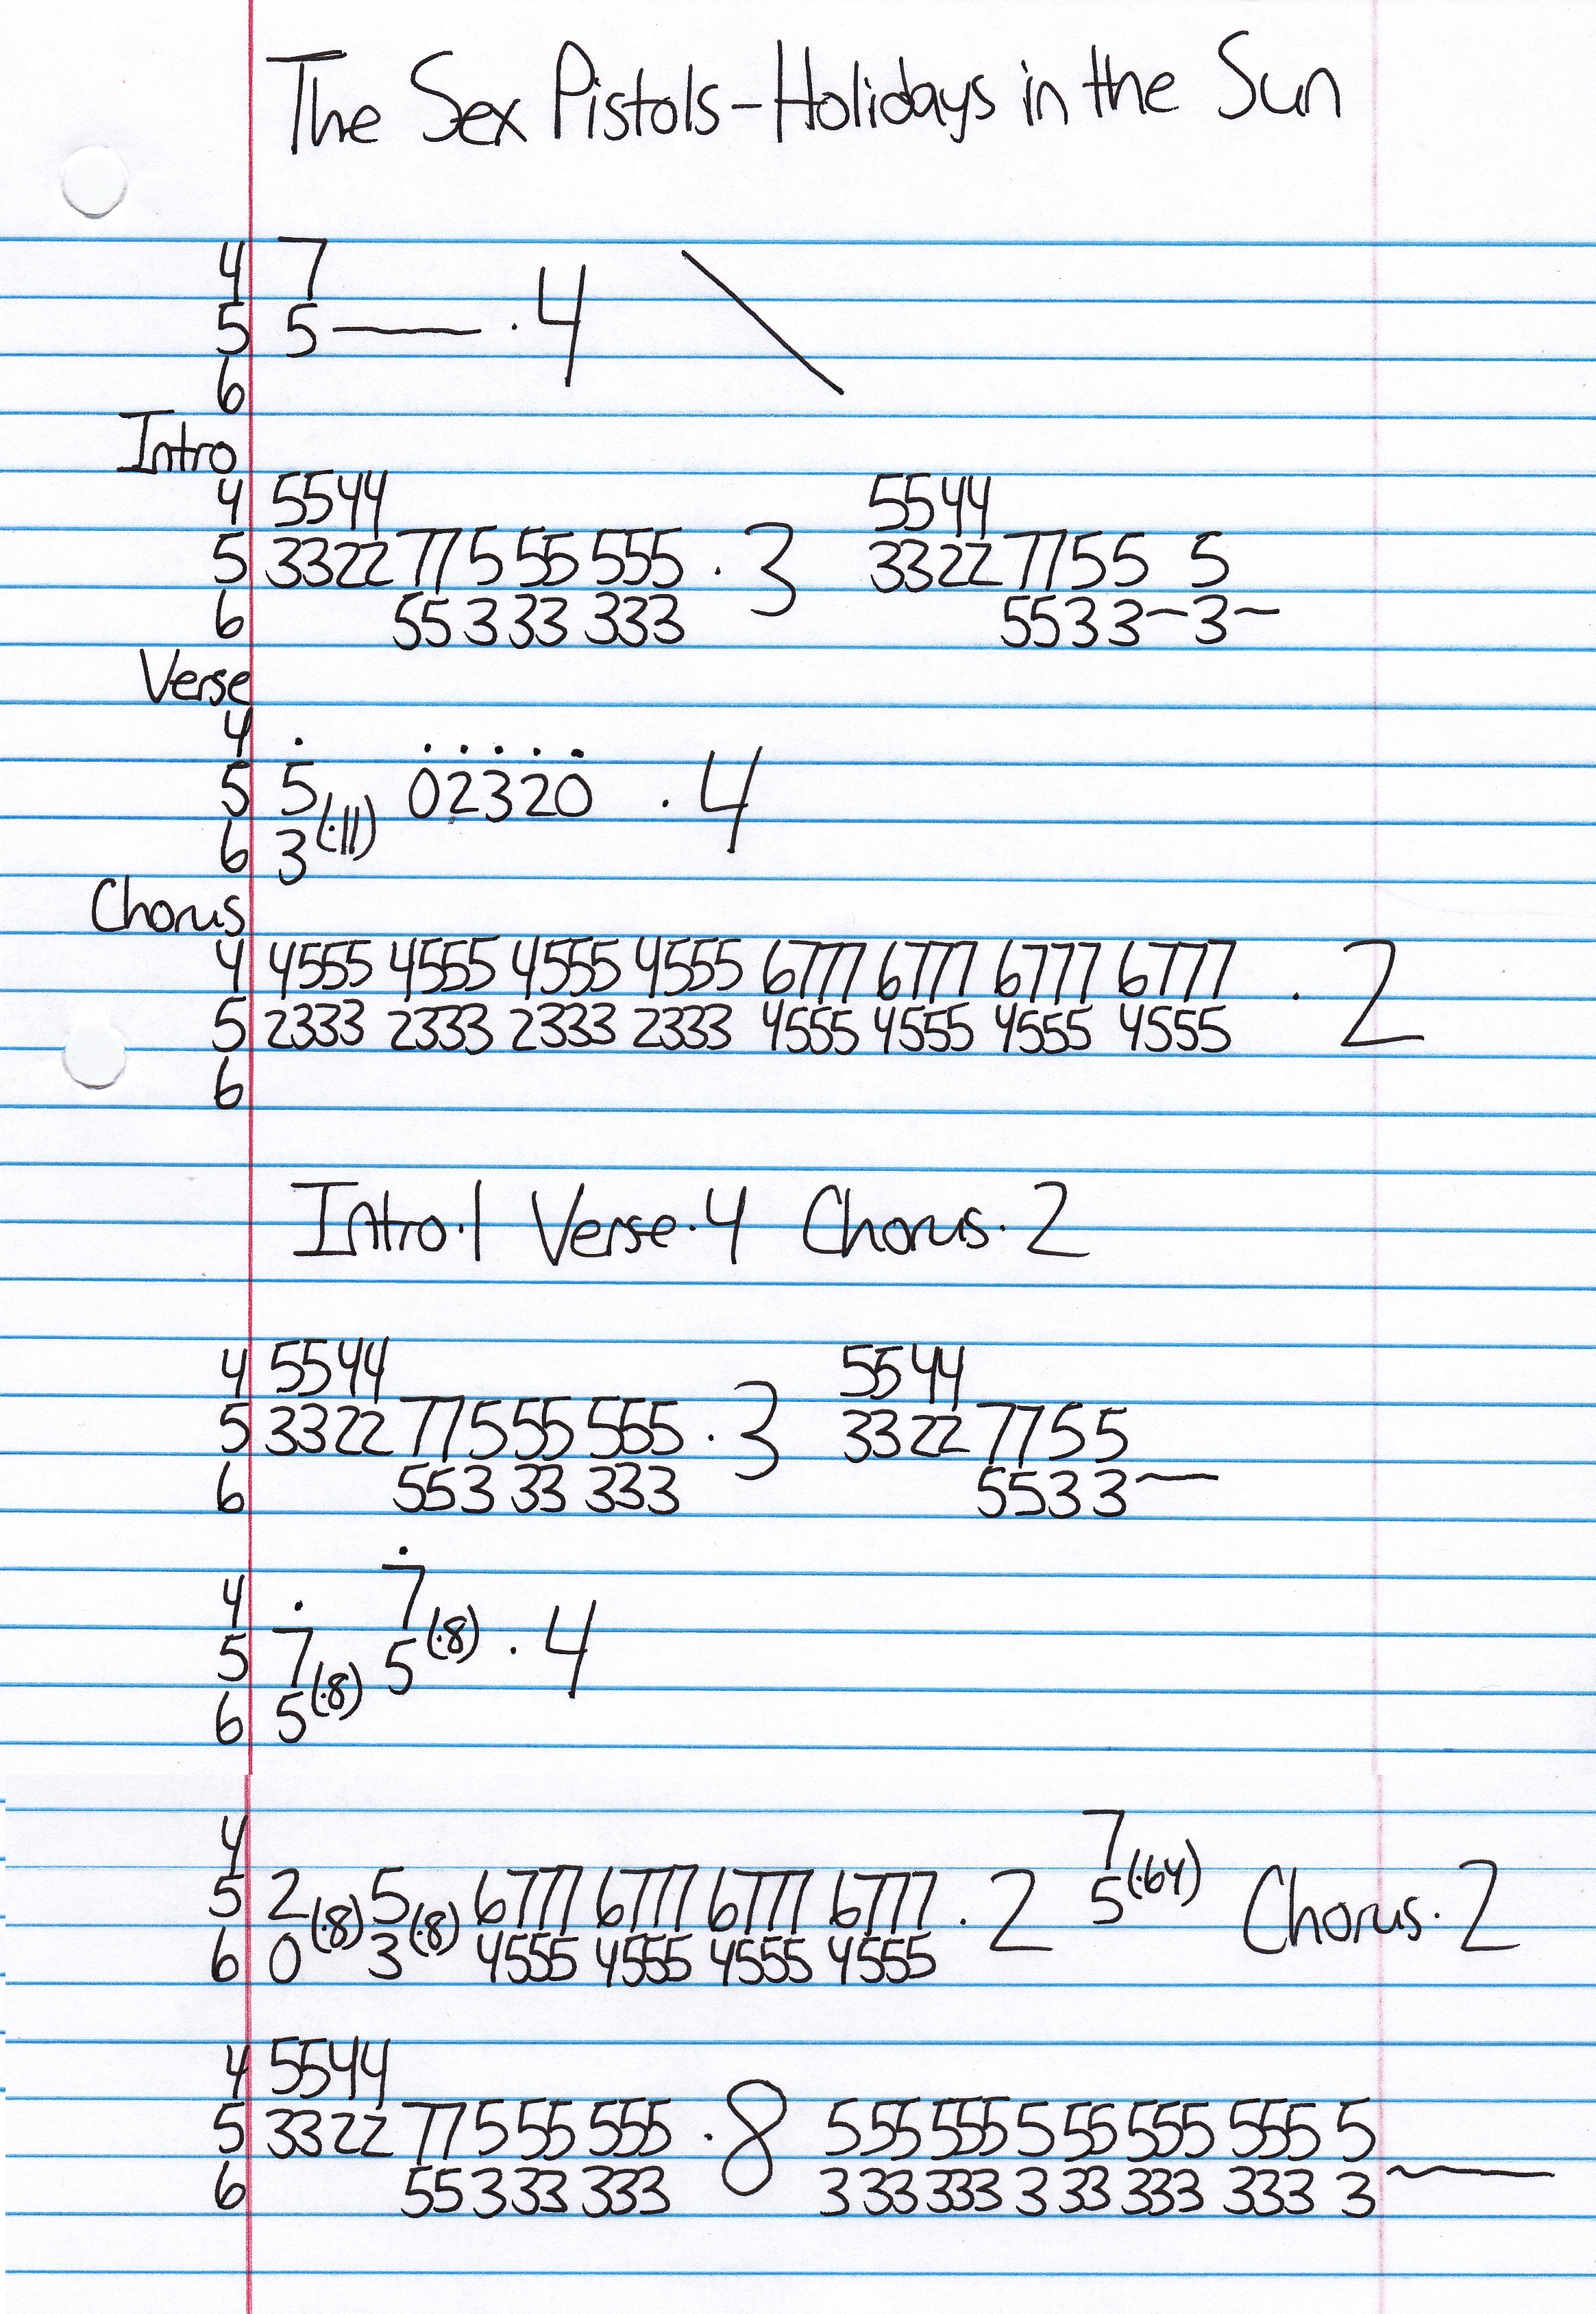 The Sex Pistols-Holidays in the Sun
4 7
5 5 — · 4 \
6
Intro
4 5544 5544
5 3322 77 5 55 555 · 3 3322 7755 5
6 55 3 33 333 5533~3~
Verse
4 . . . . . .
5 5 02320 · 4
6 3 (·11)
Chorus
4 4555 4555 4555 4555 6777 6777 6777 6777
5 2333 2333 2333 2333 4555 4555 4555 4555 · 2
6
Intro·1 Verse·4 Chorus·2
4 5544 5544
5 3322 77 5 55 555 · 3 3322 7755
6 55 3 33 333 5533~
4 . 7
5 7 5 (·8) · 4
6 5 (·8)
4 7
5 2 5 6777 6777 6777 6777 · 2 5 (·64) Chorus·2
6 0 (·8) 3 (·8) 4555 4555 4555 4555
4 5544
5 3322 77 5 55 555 · 8 5 55 555 5 55 555 555 5
6 55 3 33 333 3 33 333 3 33 333 333 3~